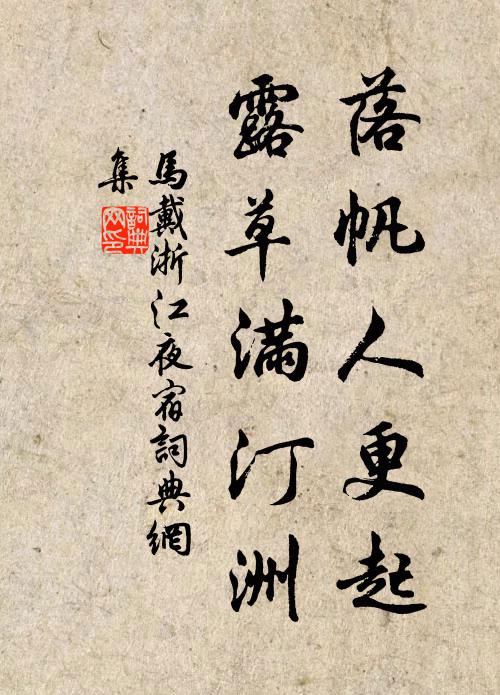 落帆人更起
露草滿汀洲
馬戴浙江夜宿詞典網
集
詞典
网印